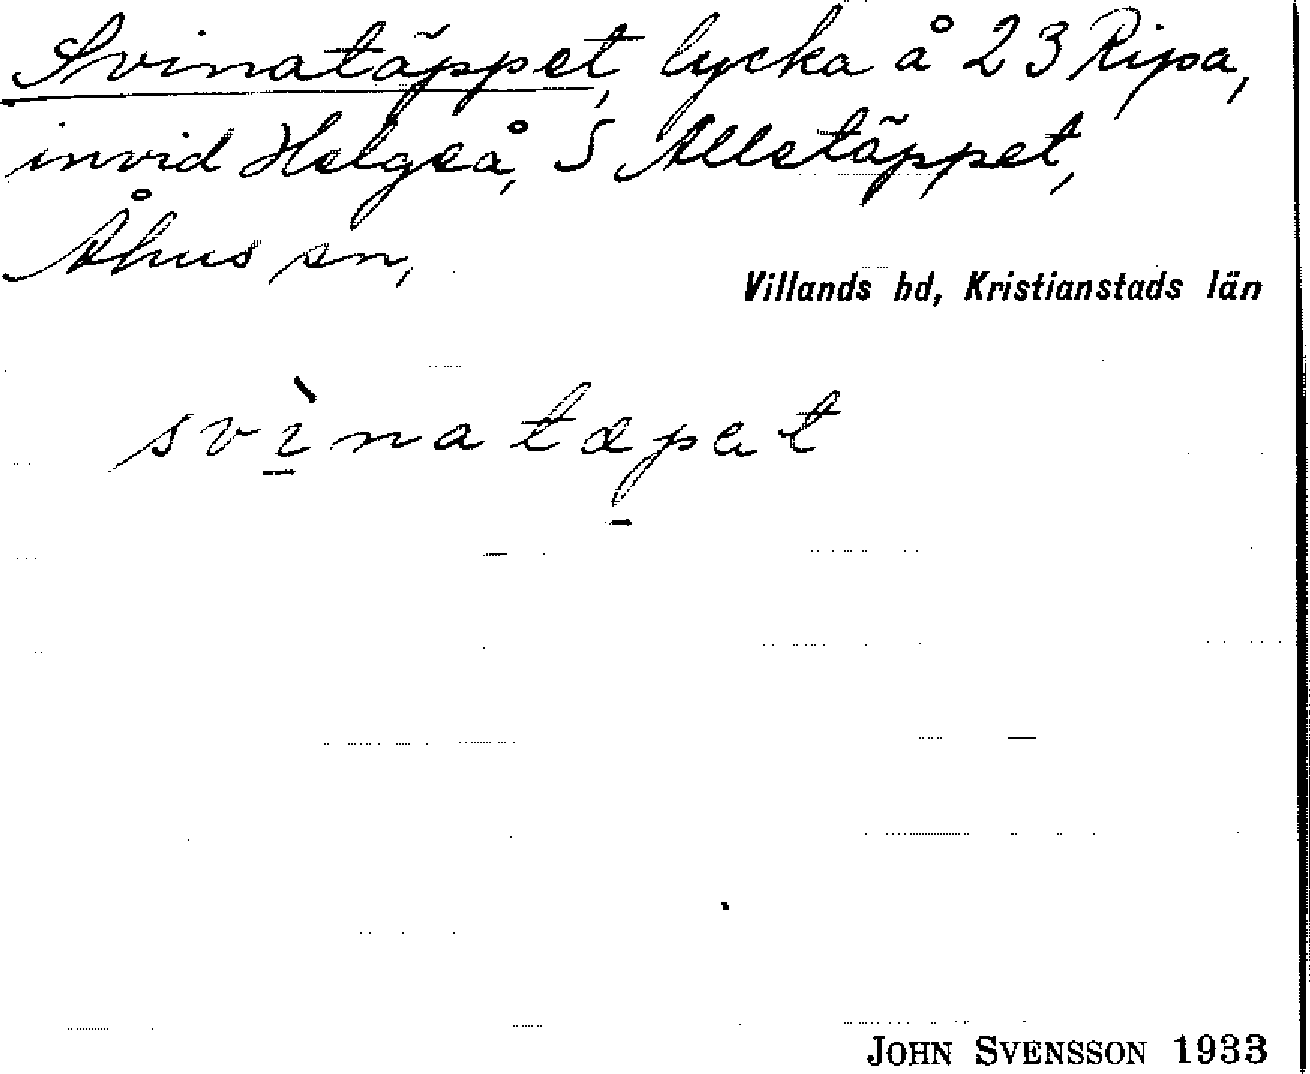 Svinatäppet, lycka å 23 Ripa,
invid Helgeå, S Alletäppet,
Åhus sn,
Villands hd, Kristianstads län
svìnatæpat
JOHN SVENSSON 1933